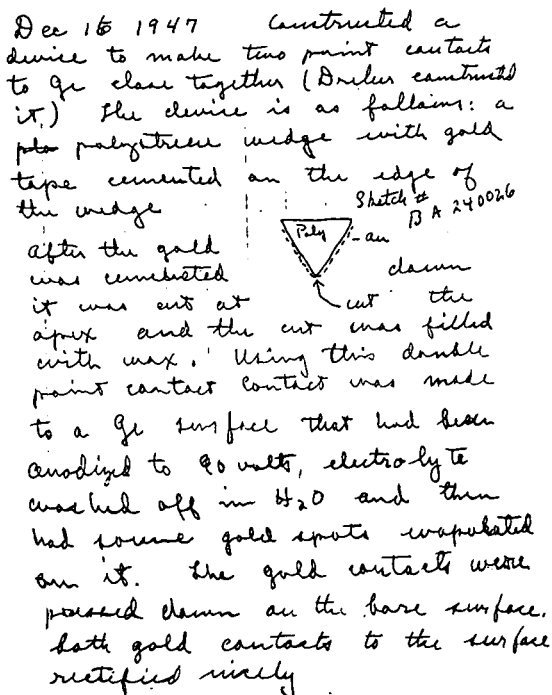 Dec 16 1947 Constructed a
device to make two point contacts
to Ge close together (Dreher constructed
it.) The device is as follows: a
polystrene wedge with gold
tape cemented on the edge of
the wedge
Sketch #
BA 240026
Poly
au
After the gold
was cemented down
it was cut at the
cut
apex and the cut was filled
with wax. Using this double
point contact contact was made
to a Ge surface that had been
anodized to 90 volts, electrolyte
washed off in H2O and then
had some gold spots evaporated
on it. The gold contacts were
pressed down on the bare surface.
both gold contacts to the surface
rectified nicely